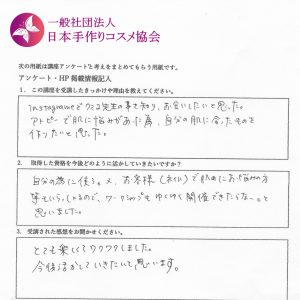 一般社団法人
日本手作りコスメ協会
次の用紙は講座アンケートと考えをまとめてもらう用紙です。
アンケート・HP 掲載情報記入
1. この講座を受講したきっかけや理由を教えてください。
instagramでクミ先生の事を知り、お会いしたいと思った。
アトピーで肌に悩みがあった為、自分の肌に合ったものを
作りたいと思った。
2. 取得した資格を今後どのように活かしていきたいですか?
自分の為に使う。又、お客様(ネイル)で肌のにお悩みの方
等もいらっしゃるので、ワークショップもゆくゆく開催できたらなー。と
思いました。
3. 受講された感想をお聞かせください。
とても楽しくてワクワクしました。
今後活かしていきたいと思います。